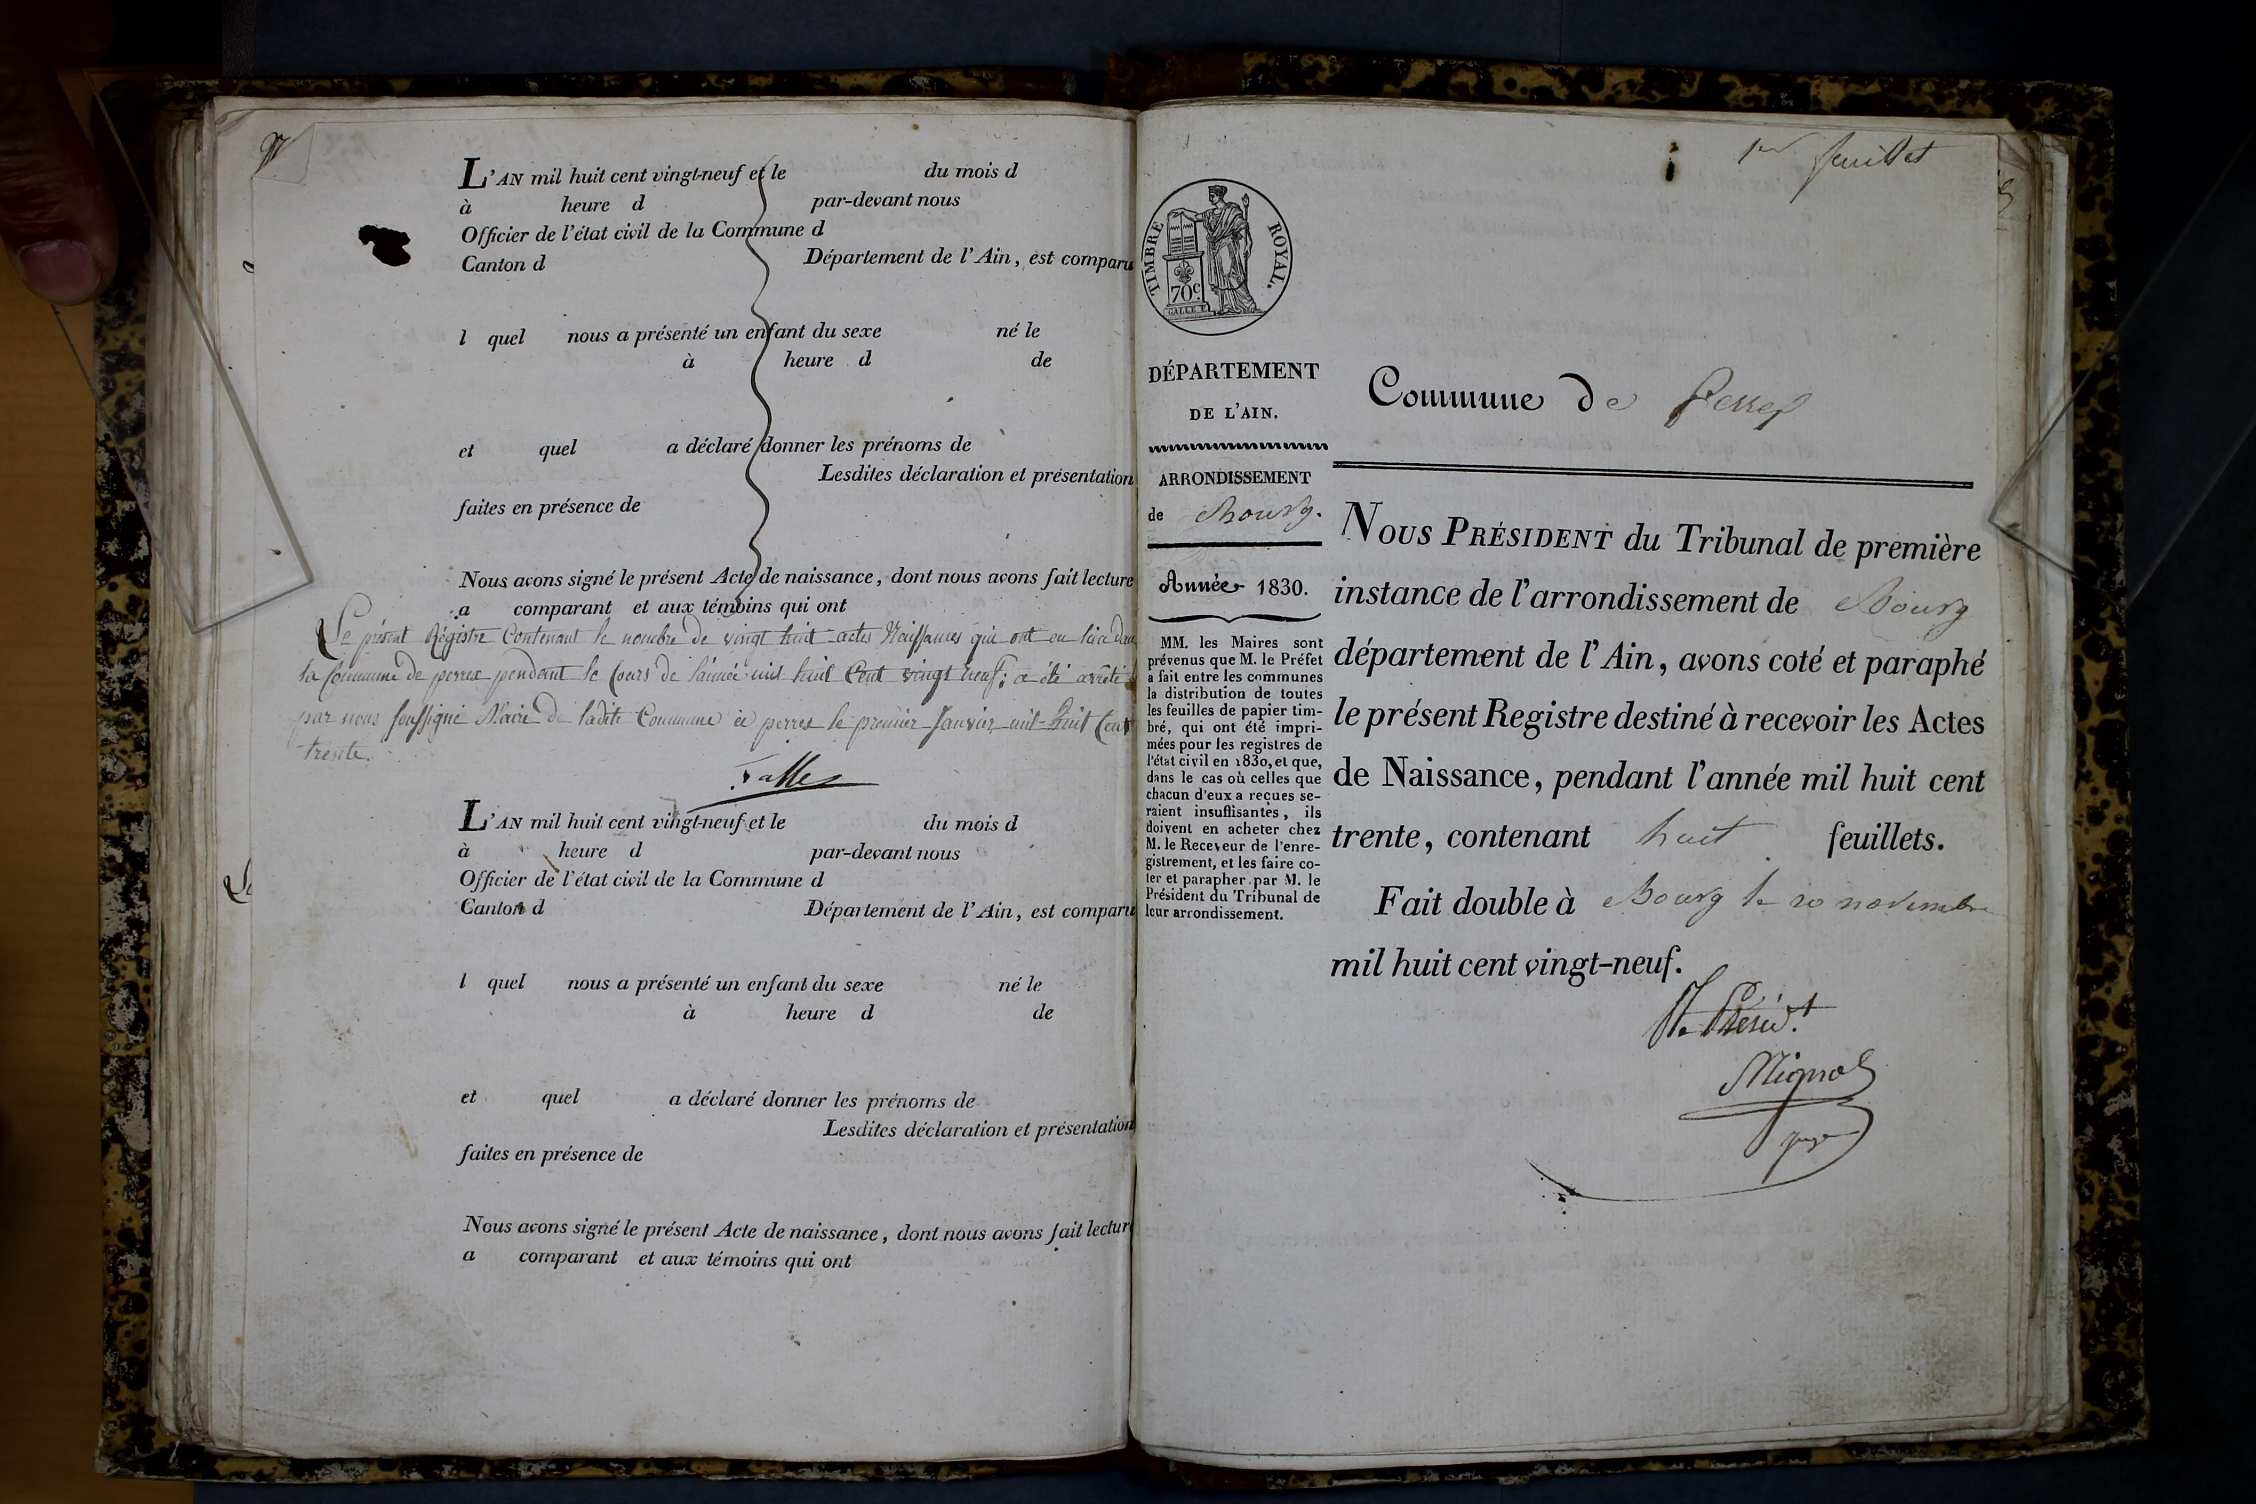 L'AN mil huit cent vingt-neuf et le du mois d
à heure d par-devant nous
Officier de l'état civil de la Commune d
Canton d Département de l'Ain, est comparu
l quel nous a présenté un enfant du sexe né le
à heure d de
et quel a déclaré donner les prénoms de
Lesdites déclaration et présentation
faites en présence de
Nous avons signé le présent Acte de naissance, dont nous avons fait lecture
a comparant et aux témoins qui ont
Le présent Régistre Contenant le nombre de vingt huit actes Naissances qui ont eu lieu dans
la Commune de perrex pendant le Cours de l'année mil huit Cent vingt neuf; a été arrêté
par nous soussigné Maire de ladite Commune de perrex le premier Janvier mil-huit Cent
trente.
L'AN mil huit cent vingt-neuf et le du mois d
à heure d par-devant nous
Officier de l'état civil de la Commune d
Canton d Département de l'Ain, est comparu
l quel nous a présenté un enfant du sexe né le
à heure d de
et quel a déclaré donner les prénoms de
Lesdites déclaration et présentation
faites en présence de
Nous avons signé le présent Acte de naissance, dont nous avons fait lecture
a comparant et aux témoins qui ont
1er feuillet
TIMBRE ROYAL.
70c
DÉPARTEMENT
DE L'AIN.
ARRONDISSEMENT
de Bourg.
Année 1830.
MM. les Maires sont
prévenus que M. le Préfet
a fait entre les communes
la distribution de toutes
les feuilles de papier tim-
bré, qui ont été impri-
mées pour les registres de
l'état civil en 1830, et que,
dans le cas où celles que
chacun d'eux a reçues se-
raient insuffisantes, ils
doivent en acheter chez
M. le Receveur de l'enre-
gistrement, et les faire co-
ter et parapher par M. le
Président du Tribunal de
leur arrondissement.
Commune de Perrex
NOUS PRÉSIDENT du Tribunal de première
instance de l'arrondissement de Bourg
département de l'Ain, avons coté et paraphé
le présent Registre destiné à recevoir les Actes
de Naissance, pendant l'année mil huit cent
trente, contenant huit feuillets.
Fait double à Bourg le 20 novembre
mil huit cent vingt-neuf.
Le Présidt
juge